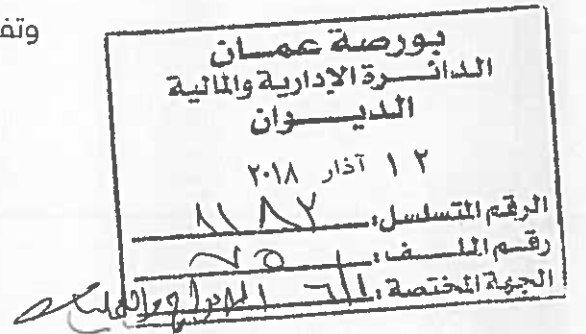 وتف
بورصة عمـــان
الدائـــرة الإدارية والمالية
الديـــــوان
١ ٢ آذار ٢٠١٨
الرقم المتسلسل:
رقـــم الملـــف:
الجهة المختصة: